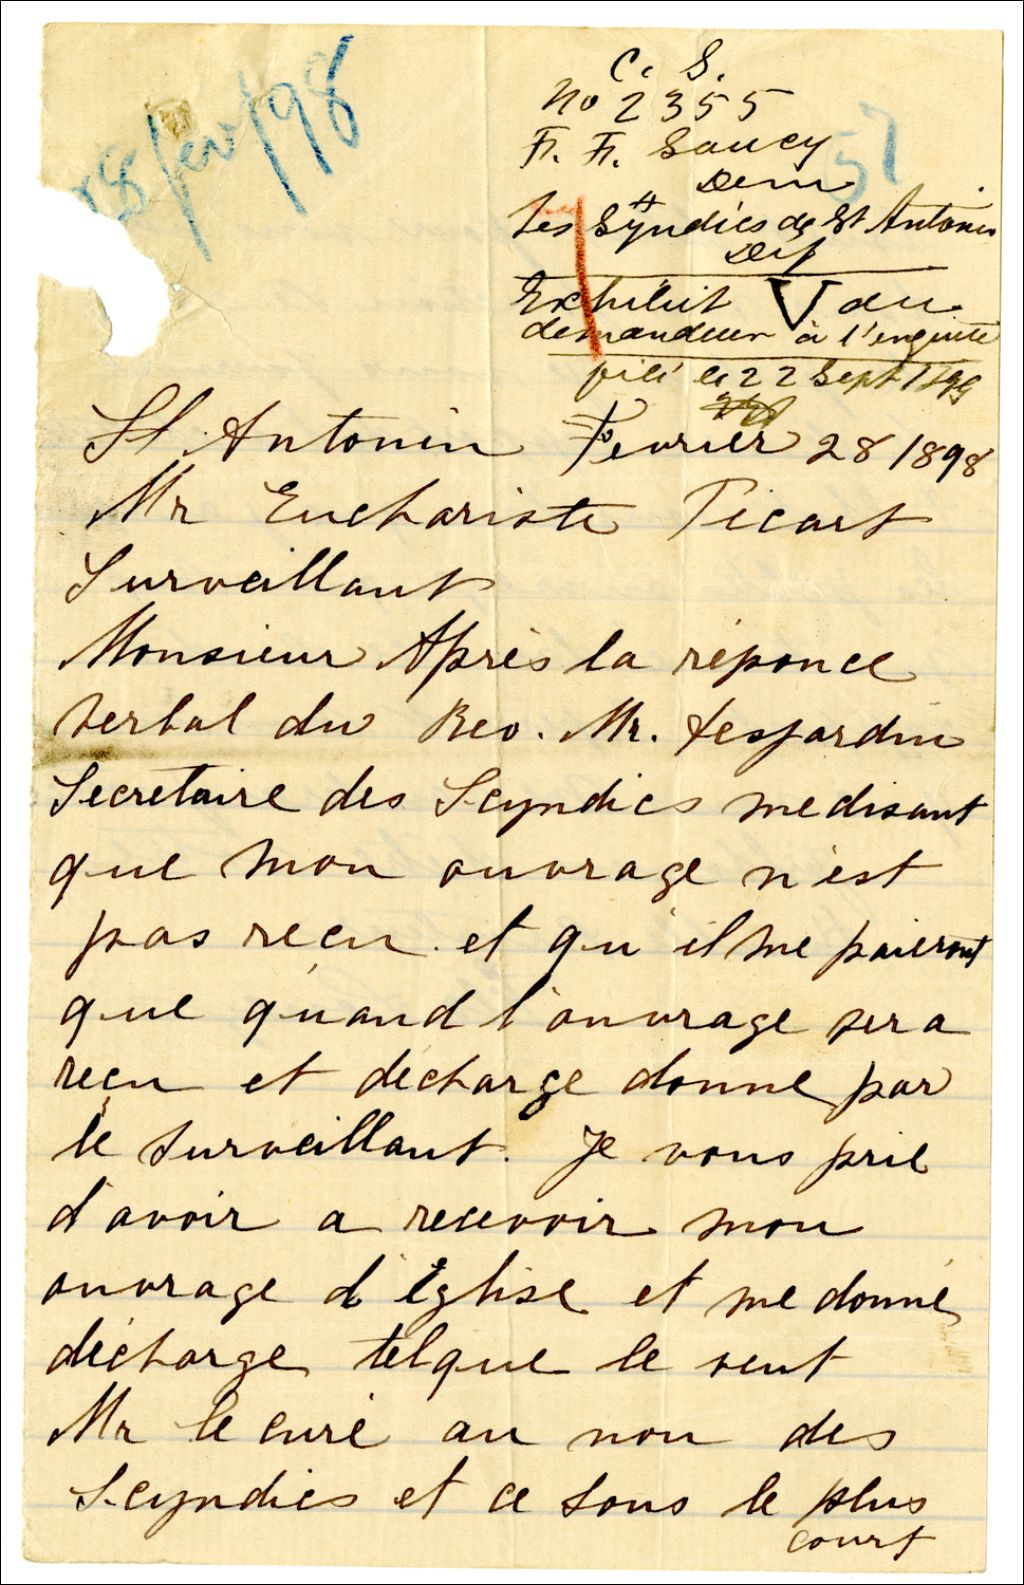 28 fev/98
57
C. S.
No 2355
F. F. Saucy
Dem
Les Syndics de St Antonin
Def
Exhibit V du
demandeur à l'enquete
filé le 22 Sept 1899
St Antonin Fevrier 28 1898
Mr Euchariste Picart
Surveillant
Monsieur Après la réponce
verbal du Rev. Mr. Desjardin
Secretaire des Scyndics me disant
que mon ouvrage n'est
pas reçu et qu'il me paieront
que quand l'ouvrage sera
reçu et décharge donne par
le Surveillant. Je vous prie
d'avoir a recevoir mon
ouvrage d'église et me donné
décharge telque le veut
Mr le curé au non des
Scyndics et ce sous le plus
court